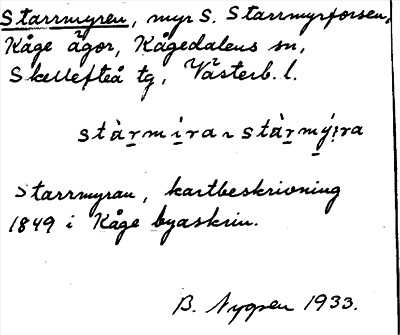 Starrmyren, myr S. Starrmyrforsen,
Kåge ägor, Kågedalens sn,
Skellefteå tg, Västerb. l.
stàr̲mí̲ra ~ stàr̲mý̲ra
Starrmyran, kartbeskrivning
1849 i Kåge byaskrin.
B. Nygren 1933.